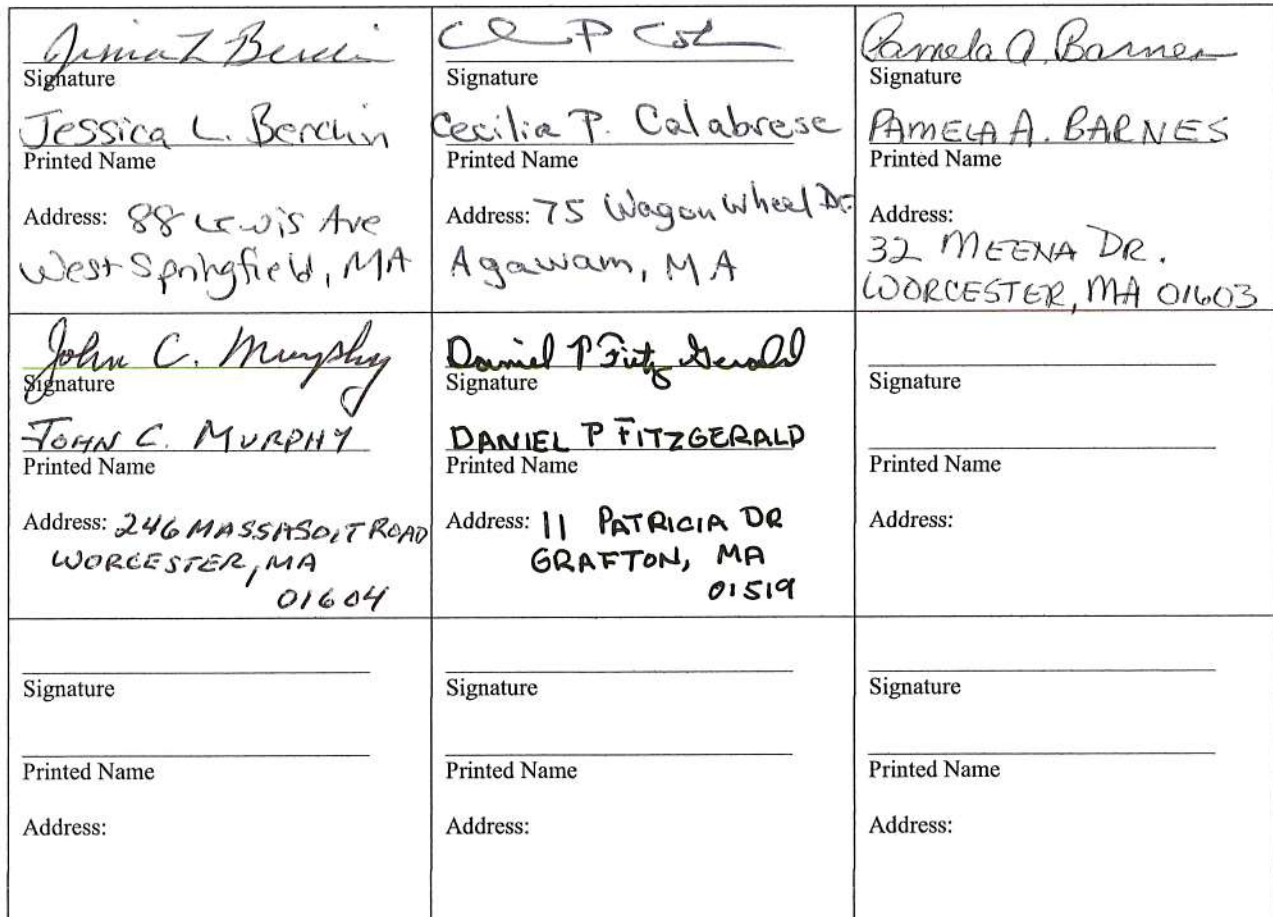 Signature
Jessica L. Berchin
Printed Name
Address: 88 Lewis Ave
West Springfield, MA
Signature
Cecilia P. Calabrese
Printed Name
Address: 75 Wagon Wheel Dr.
Agawam, MA
Pamela A. Barnes
Signature
PAMELA A. BARNES
Printed Name
Address:
32 MEENA DR.
WORCESTER, MA 01603
John C. Murphy
Signature
JOHN C. MURPHY
Printed Name
Address: 246 MASSASOIT ROAD
WORCESTER, MA
01604
Daniel P FitzGerald
Signature
DANIEL P FITZGERALD
Printed Name
Address: 11 PATRICIA DR
GRAFTON, MA
01519
Signature
Printed Name
Address:
Signature
Printed Name
Address:
Signature
Printed Name
Address:
Signature
Printed Name
Address: